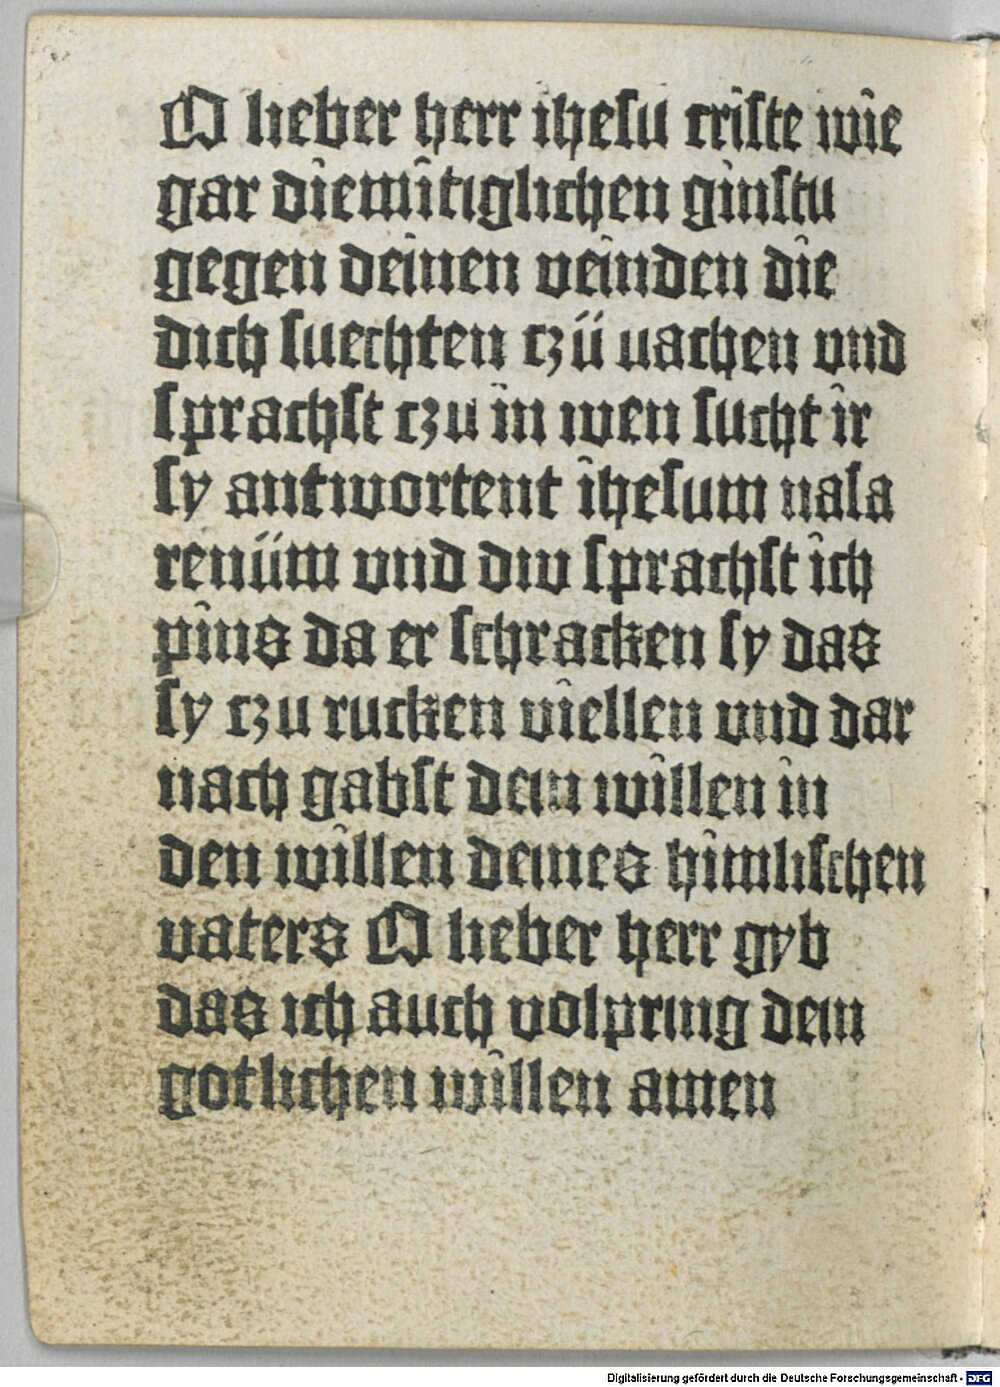 O lieber herr ihesu criste wie
gar diemŭtiglichen ginstu
gegen deinen veinden die
dich suechten czü vachen vnd
sprachst czu in wen sucht ir
sy antwortent ihesum nasa
renüm vnd diu sprachst ich
pins da er schracken sy das
sy czu rucken viellen vnd dar
nach gabst dein willen in
den willen deines himlischen
vaters O lieber herr gyb
das ich auch volpring dein
gotlichen willen amen
Digitalisierung gefördert durch die Deutsche Forschungsgemeinschaft - DFG